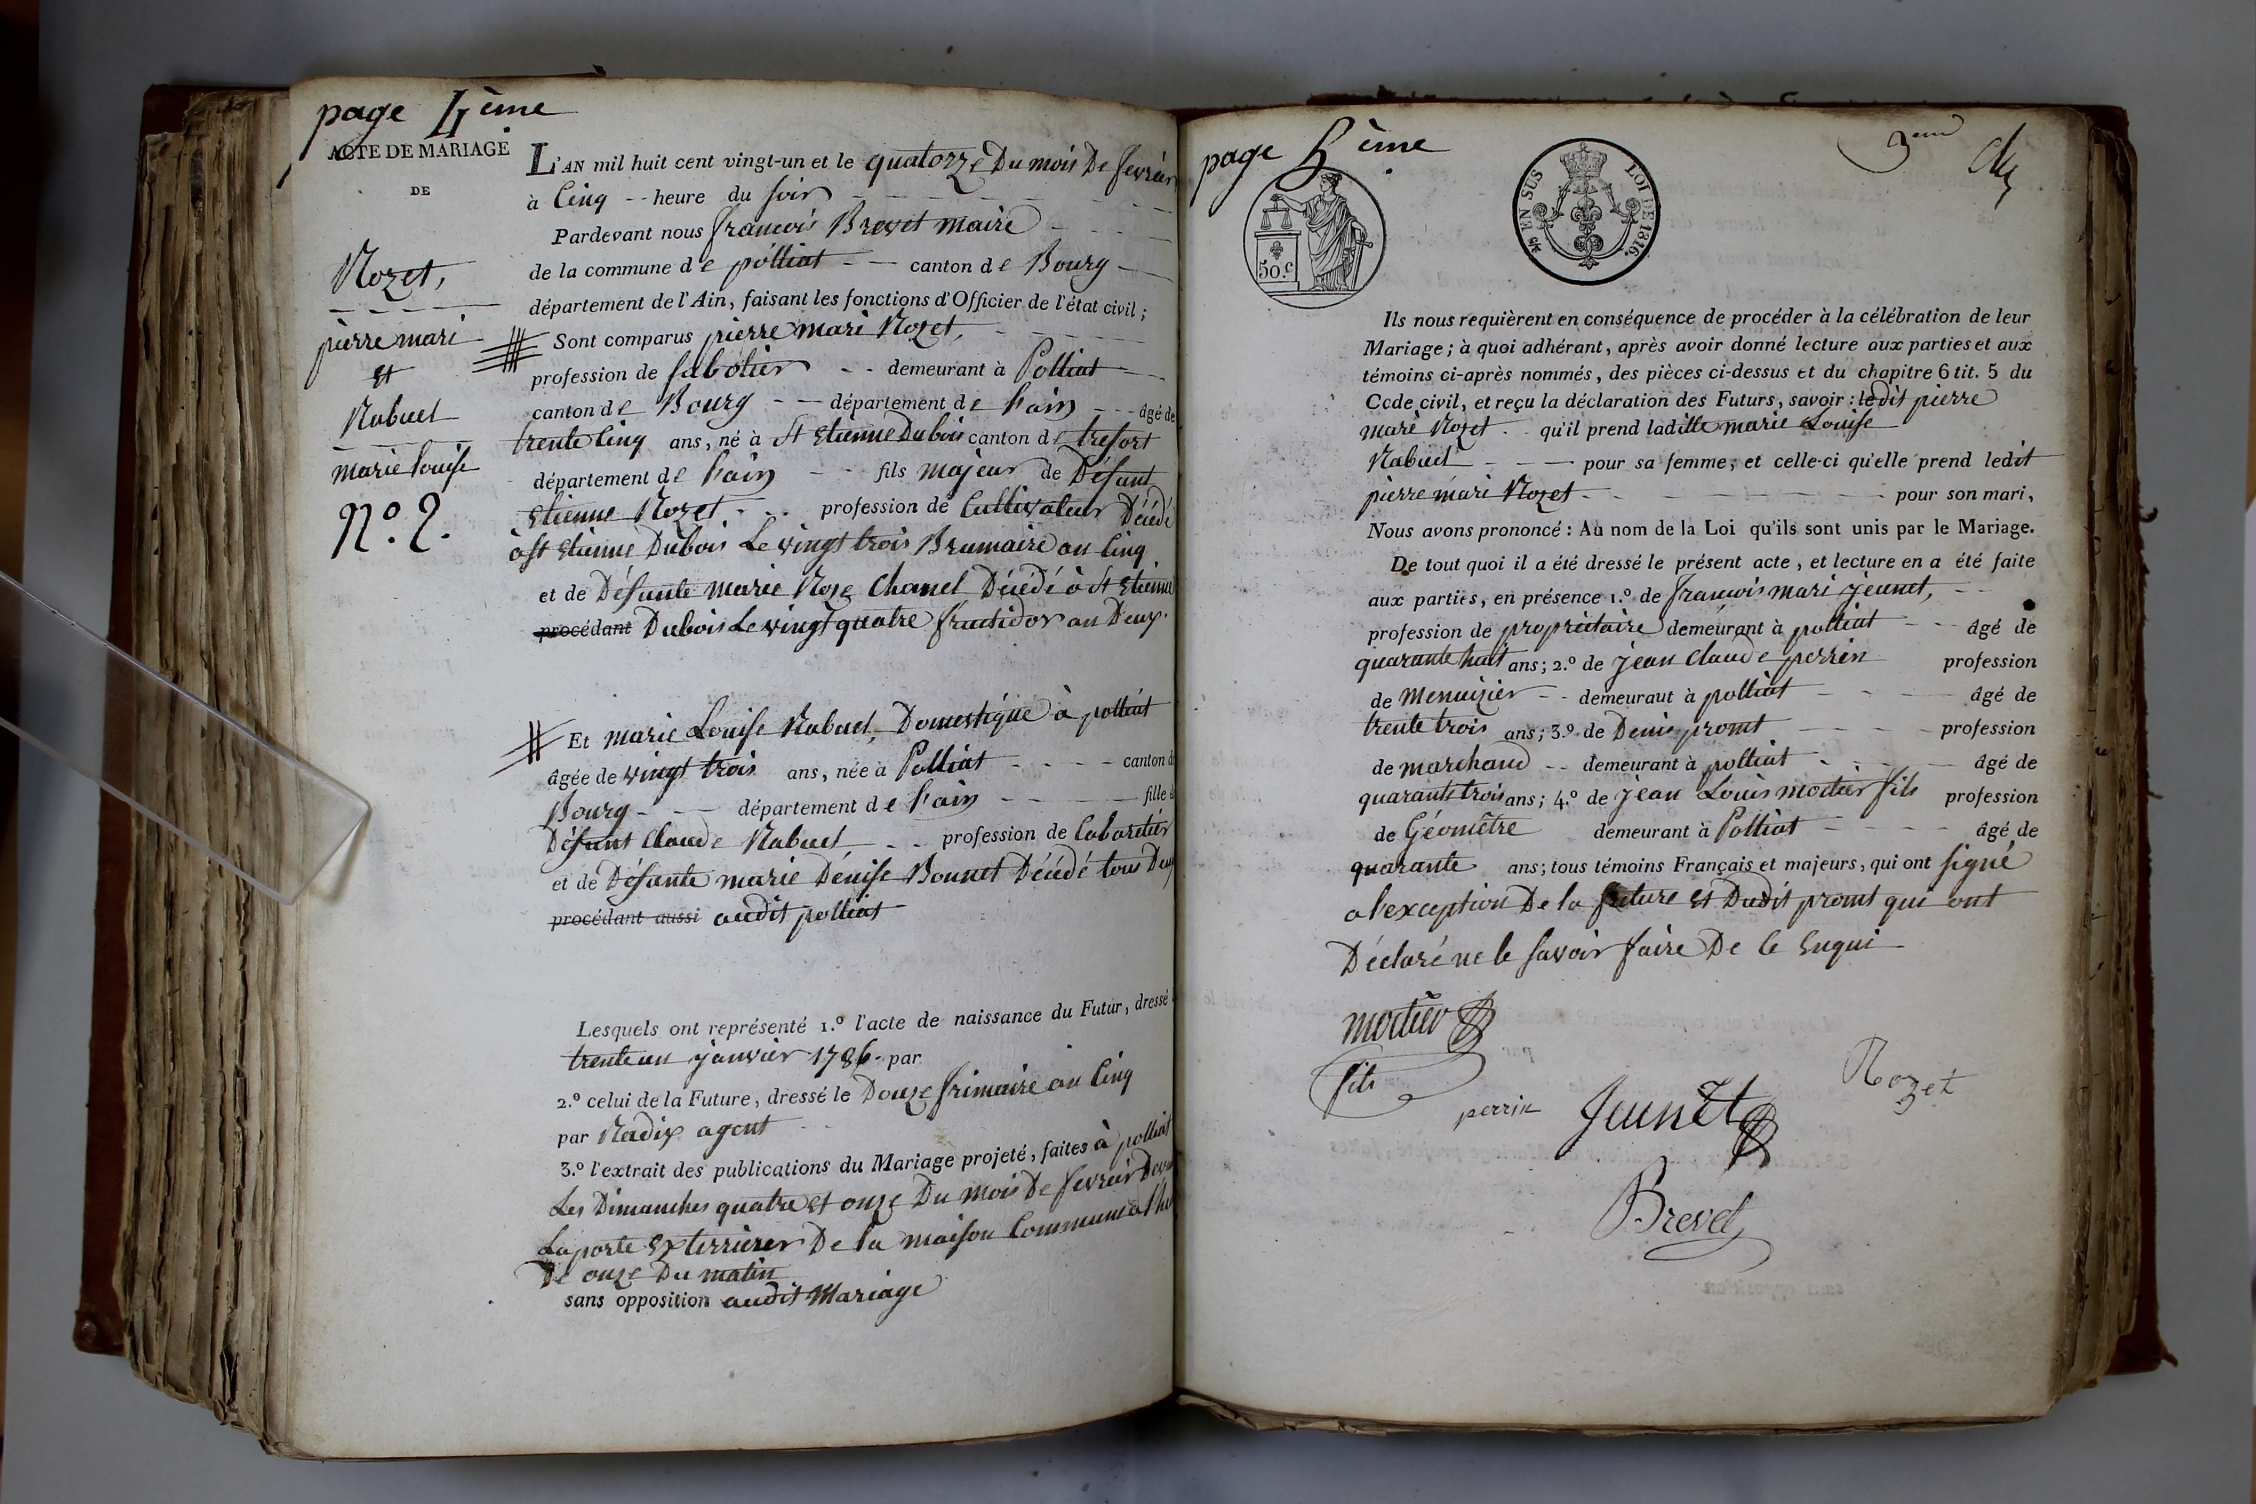 page 4ème
ACTE DE MARIAGE
DE
Rozet,
pierre mari
Et
Rabuel
marie Louise
N.º 2.
L'AN mil huit cent vingt-un et le quatorze Du mois De fevrier
à Cinq -- heure du soir
Pardevant nous francois Brevet maire
de la commune de polliat -- canton de Bourg
département de l'Ain, faisant les fonctions d'Officier de l'état civil;
Sont comparus pierre mari Rozet,
profession de sabotier -- demeurant à Polliat
canton de Bourg -- département de l'ain -- âgé de
trente Cinq ans, né à St Etienne Dubois canton de tresort
département de l'ain -- fils majeur de Défunt
Etienne Rozet -- profession de Cultivateur Décédé
à St Etienne Dubois Le vingt trois Brumaire an Cinq
et de Défunte marie Rose Chanel Décédé à St Etienne
procédant Dubois Le vingt quatre fructidor an Deux.
Et marie Louise Rabuel, Domestique à polliat
âgée de vingt trois ans, née à Polliat -- canton d
Bourg -- département de l'ain -- fille d
Défunt Claude Rabuel -- profession de Cabaretier
et de Défunte marie Dénise Bonnet Décédé tous Deux
procédant aussi audit polliat
Lesquels ont représenté 1.º l'acte de naissance du Futur, dressé
trente un janvier 1786. par
2.º celui de la Future, dressé le Douze frimaire an Cinq
par Radix agent
3.º l'extrait des publications du Mariage projeté, faites à polliat
Les Dimanches quatre et onze Du mois De fevrier Deva
La porte Exterrieur De la maison Commune a l'heu
De onze Du matin
sans opposition audit Mariage
page 5ème
3eme
50.c
EN SUS
LOI DE 1816.
Ils nous requièrent en conséquence de procéder à la célébration de leur
Mariage; à quoi adhérant, après avoir donné lecture aux parties et aux
témoins ci-après nommés, des pièces ci-dessus et du chapitre 6 tit. 5 du
Code civil, et reçu la déclaration des Futurs, savoir: ledit pierre
mari Rozet -- qu'il prend laditte marie Louise
Rabuel -- pour sa femme; et celle-ci qu'elle prend ledit
pierre mari Rozet -- pour son mari,
Nous avons prononcé: Au nom de la Loi qu'ils sont unis par le Mariage.
De tout quoi il a été dressé le présent acte, et lecture en a été faite
aux parties, en présence 1.º de francois mari jeunet,
profession de propriétaire demeurant à polliat -- âgé de
quarante huit ans; 2.º de jean Claude perrin profession
de Menuizier -- demeurant à polliat -- âgé de
trente trois ans; 3.º de Denis promt -- profession
de marchand -- demeurant à polliat -- âgé de
quarante trois ans; 4.º de jean Louis mortier fils profession
de Géomètre demeurant à Polliat -- âgé de
quarante ans; tous témoins Français et majeurs, qui ont signé
a l'exception De la future et Dudit promt qui ont
Déclaré ne le savoir faire De Ce Enqui
mortier
fils
perrin
Jeunet
Rozet
Brevet